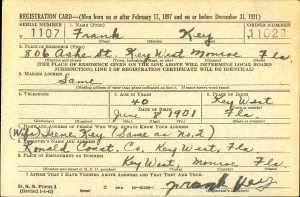 REGISTRATION CARD—(Men born on or after February 17, 1897 and on or before December 31, 1921)
SERIAL NUMBER 1. NAME (Print) ORDER NUMBER
1107 Frank Key 11023
2. PLACE OF RESIDENCE (Print)
806 Ashe St. Key West Monroe Fla.
(THE PLACE OF RESIDENCE GIVEN ON THE LINE ABOVE WILL DETERMINE LOCAL BOARD
JURISDICTION; LINE 2 OF REGISTRATION CERTIFICATE WILL BE IDENTICAL)
3. MAILING ADDRESS
Same
4. TELEPHONE 5. AGE IN YEARS 6. PLACE OF BIRTH
40 Key West
DATE OF BIRTH
June 8 1901 Fla
7. NAME AND ADDRESS OF PERSON WHO WILL ALWAYS KNOW YOUR ADDRESS
(Wife) Key (Same as No. 2)
8. EMPLOYER'S NAME AND ADDRESS
Ronald Const. Co, Key West, Fla
9. PLACE OF EMPLOYMENT OR BUSINESS
Key West, Monroe Fla.
I AFFIRM THAT I HAVE VERIFIED ABOVE ANSWERS AND THAT THEY ARE TRUE.
D. S. S. Form 1
(Revised 1-1-42)
Frank Key